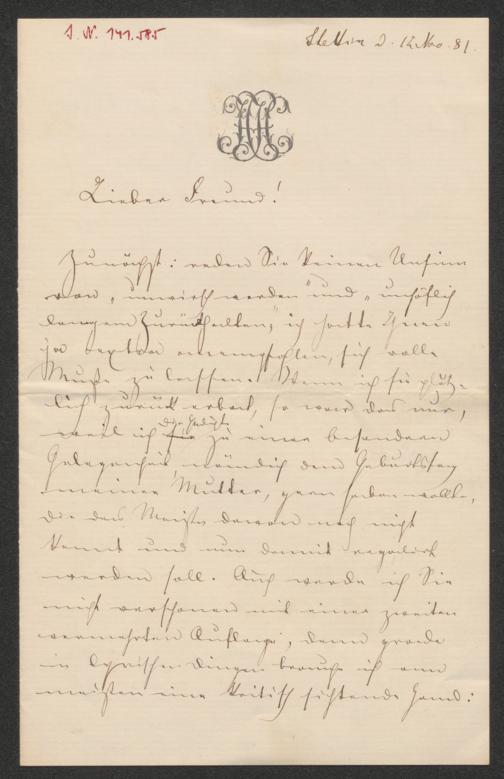 J. N. 141.585
Stettin d. 12 Nov. 81.
Lieber Freund!
Zunächst: reden Sie keinen Unsinn
von „unwirsch werden“ und „unhöflich
langem Zurückhalten,“ ich hatte Ihnen
ja extra anempfohlen, sich volle
Muße zu lassen. Wenn ich sie plötz-
lich zurück erbat, so war das nur,
weil ich die Gedichte zu einer besonderen
Gelegenheit, nämlich dem Geburtstag
meiner Mutter, gern haben wollte,
die das Meiste davon noch nicht
kennt und nun damit regalirt
werden soll. Auch werde ich Sie
nicht verschonen mit einer zweiten
vermehrten Auflage, denn grade
in lyrischen Dingen brauche ich am
meisten eine kritisch sichtende Hand: